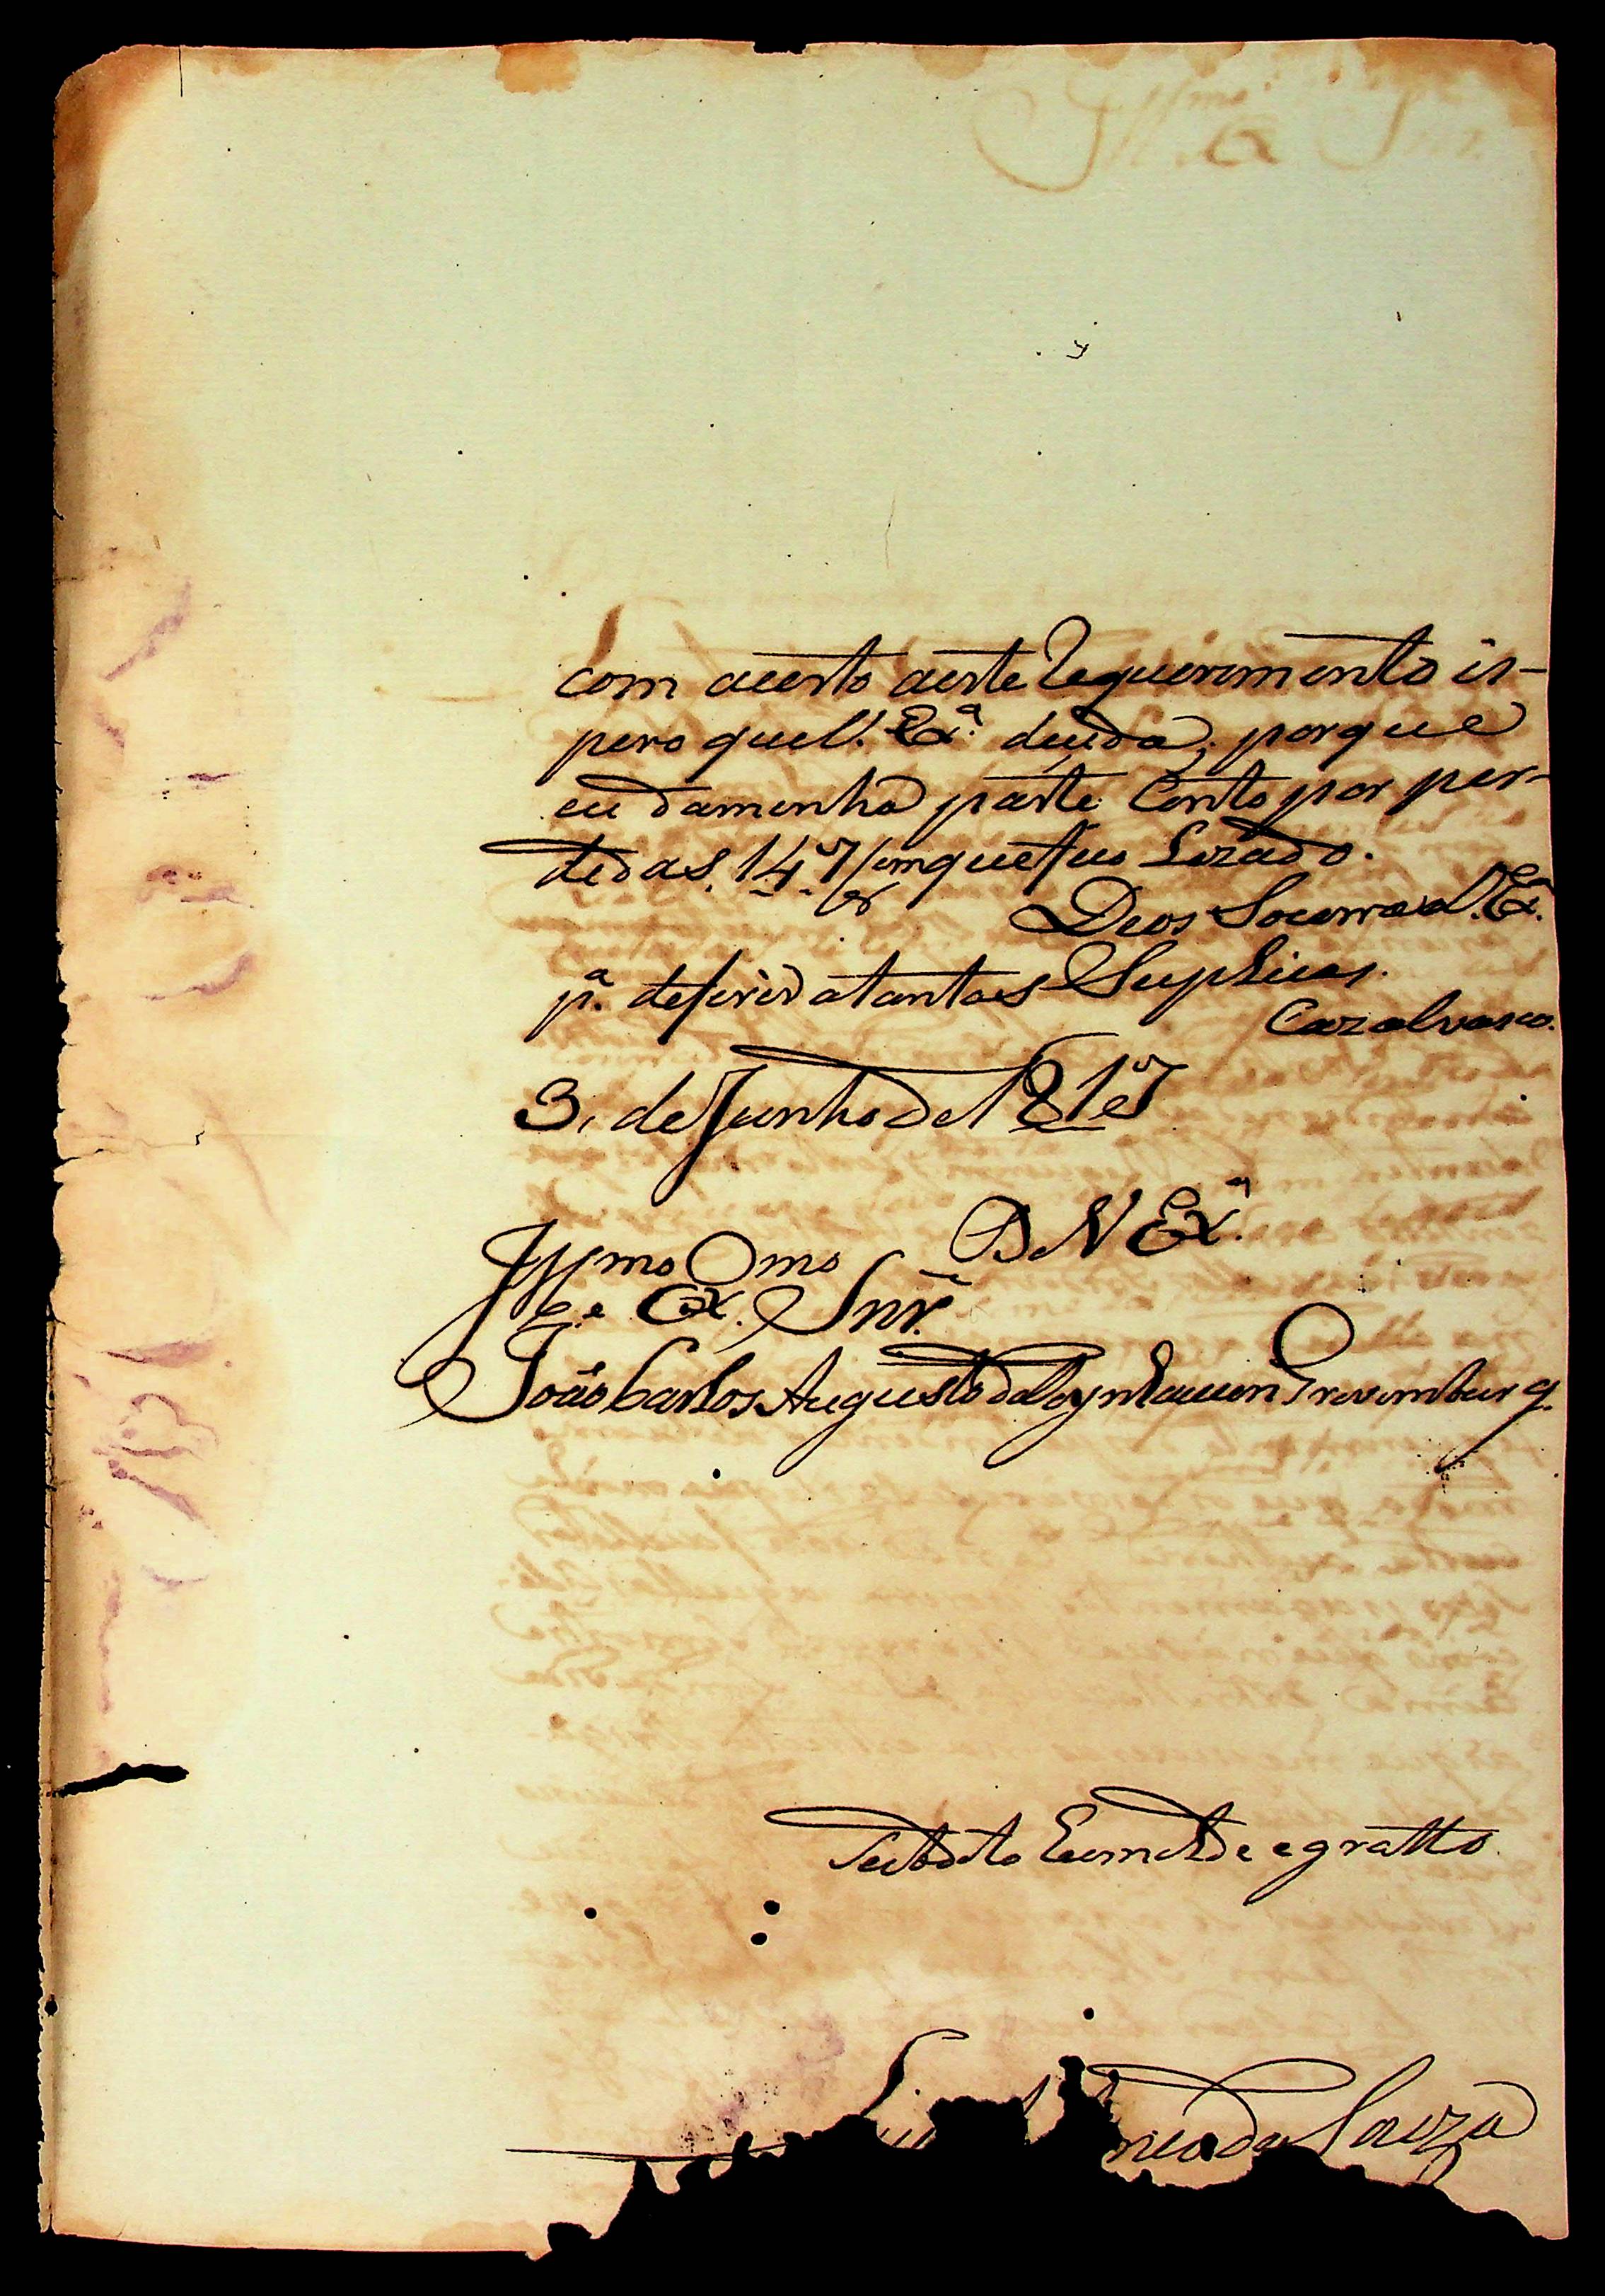 com acerto aeste Requerimento es-
pero que V. Exª. decida, porque
eu daminha parte Conto por per-
didas. 147/8 emque fuo Lezado.
Deos Socorra a V. Exª.
pª. deferir atantas Suplicas.
Cazalvasco.
3, de Junho de 1817
De V Exª.
Illmo e Exmo. Snr.
João Carlos Augusto
Subdito Eumilde e gratto
da Souza